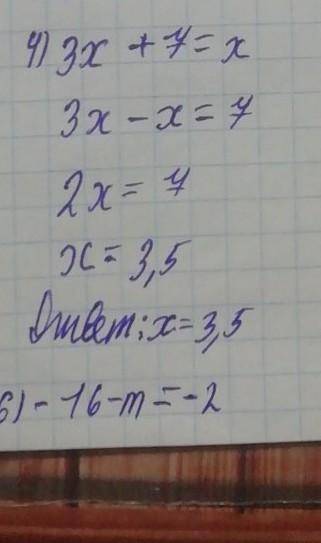 4) 3x + 7 = x
3x - x = 7
2x = 7
x = 3,5
Ответ: x = 3,5
6) - 16 - m = - 2